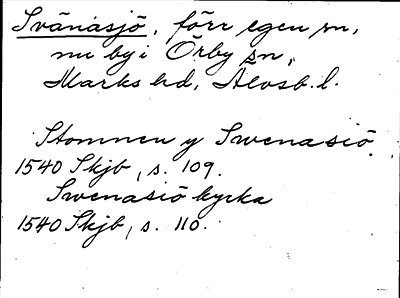 Svänasjö, förr egen sn,
nu by i Örby sn,
Marks hd, Älvsb. l.
Stommen y Swenasiö
1540 Skjb, s. 109.
Swenasiö kyrka
1540 Skjb, s. 110.